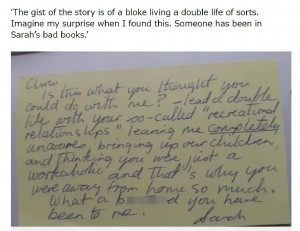 ‘The gist of the story is of a bloke living a double life of sorts.
Imagine my surprise when I found this. Someone has been in
Sarah’s bad books.’
Chris
Is this what you thought you
could do with me? - lead a double
life with your so-called "recreational
relationships" leaving me completely
unaware, bringing up our children,
and thinking you were 'just a
workaholic' and that's why you
were away from home so much.
What a b d you have
been to me.
Sarah